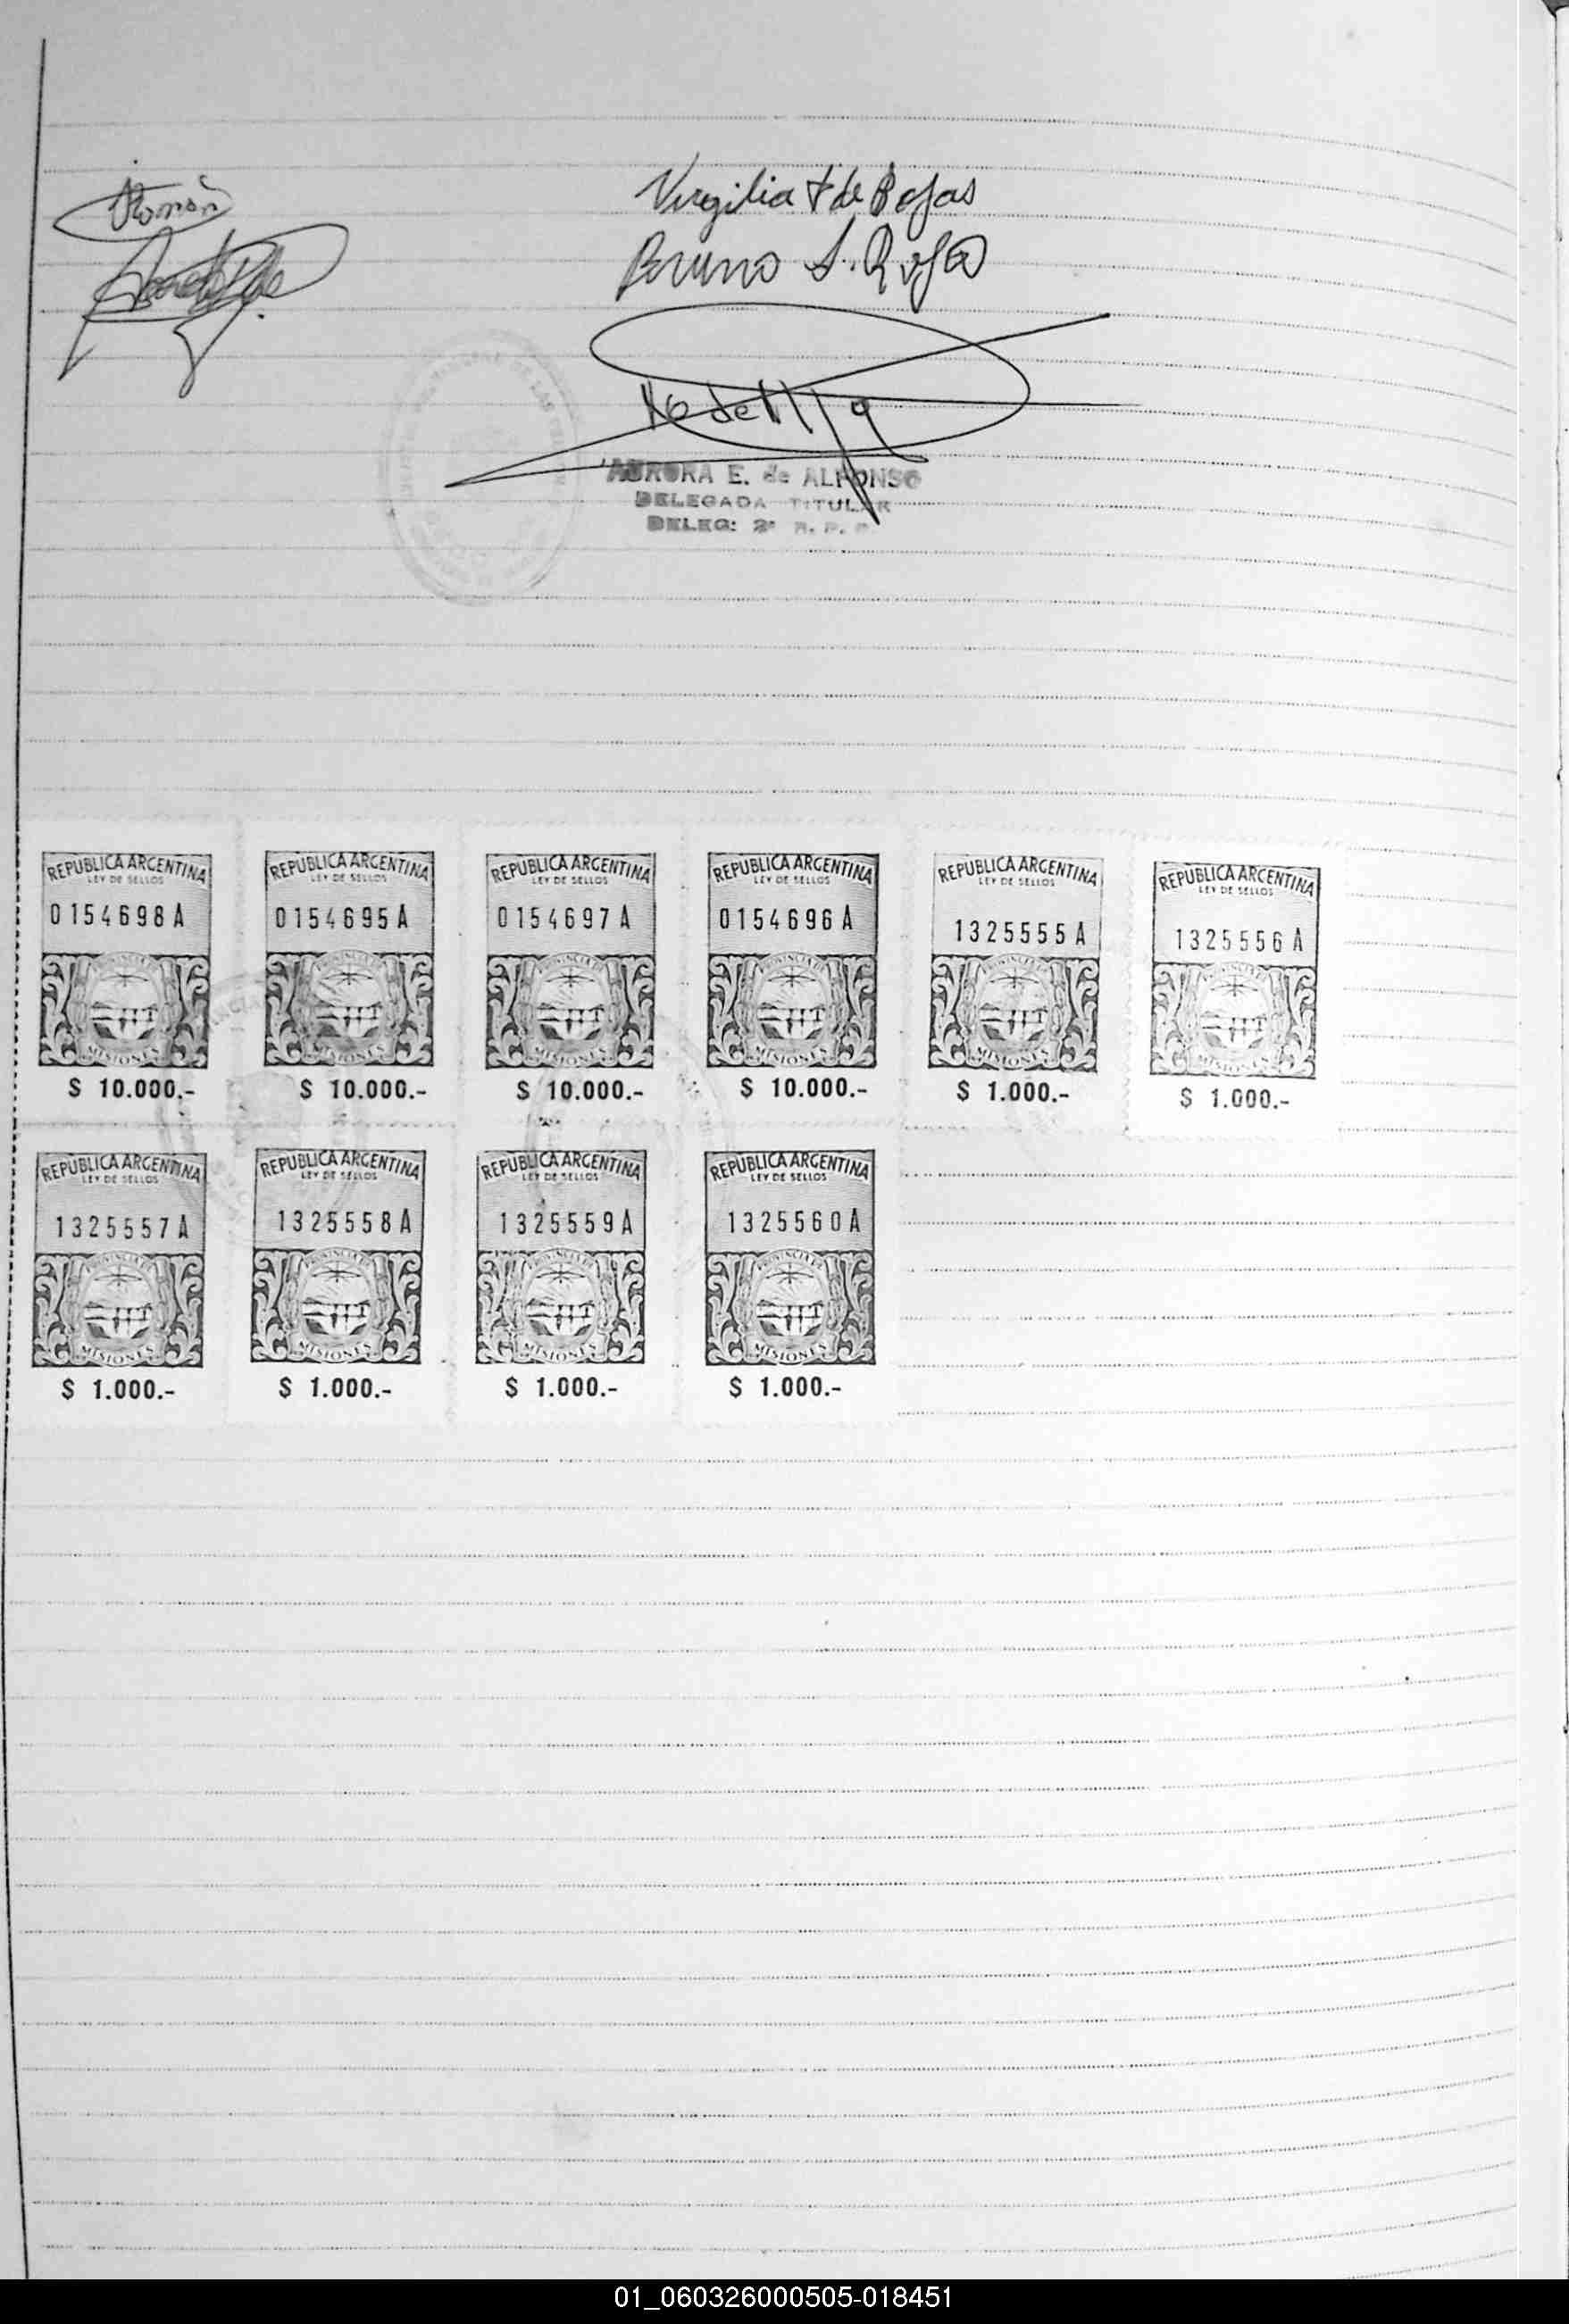 Virgilia F de Rojas
Bruno S. Rojas
AURORA E. de ALFONSO
DELEGADA TITULAR
DELEG: 2ª R. P. P.
REPUBLICA ARGENTINA REPUBLICA ARGENTINA REPUBLICA ARGENTINA REPUBLICA ARGENTINA REPUBLICA ARGENTINA REPUBLICA ARGENTINA
LEY DE SELLOS LEY DE SELLOS LEY DE SELLOS LEY DE SELLOS LEY DE SELLOS LEY DE SELLOS
0154698A 0154695A 0154697A 0154696A 1325555A 1325556A
PROVINCIA PROVINCIA PROVINCIA PROVINCIA PROVINCIA PROVINCIA
MISIONES MISIONES MISIONES MISIONES MISIONES MISIONES
$ 10.000.- $ 10.000.- $ 10.000.- $ 10.000.- $ 1.000.- $ 1.000.-
REPUBLICA ARGENTINA REPUBLICA ARGENTINA REPUBLICA ARGENTINA REPUBLICA ARGENTINA
LEY DE SELLOS LEY DE SELLOS LEY DE SELLOS LEY DE SELLOS
1325557A 1325558A 1325559A 1325560A
PROVINCIA PROVINCIA PROVINCIA PROVINCIA
MISIONES MISIONES MISIONES MISIONES
$ 1.000.- $ 1.000.- $ 1.000.- $ 1.000.-
01_060326000505-018451